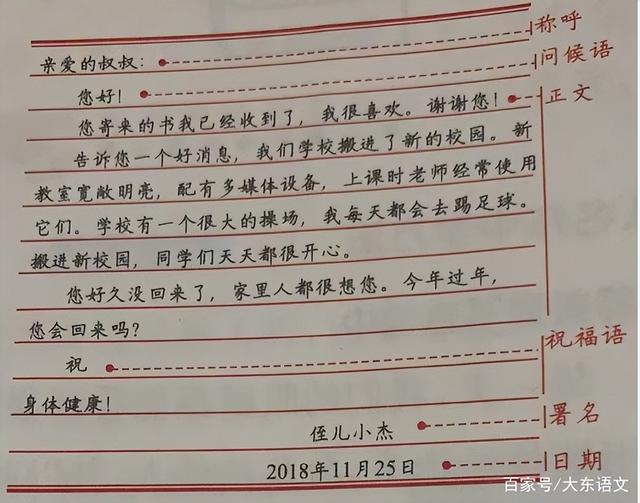 称呼
亲爱的叔叔：
问候语
您好！
正文
您寄来的书我已经收到了，我很喜欢。谢谢您！
告诉您一个好消息，我们学校搬进了新的校园。新
教室宽敞明亮，配有多媒体设备，上课时老师经常使用
它们。学校有一个很大的操场，我每天都会去踢足球。
搬进新校园，同学们天天都很开心。
您好久没回来了，家里人都很想您。今年过年，
您会回来吗？
祝福语
祝
身体健康！
署名
侄儿小杰
日期
2018年11月25日
百家号/大东语文